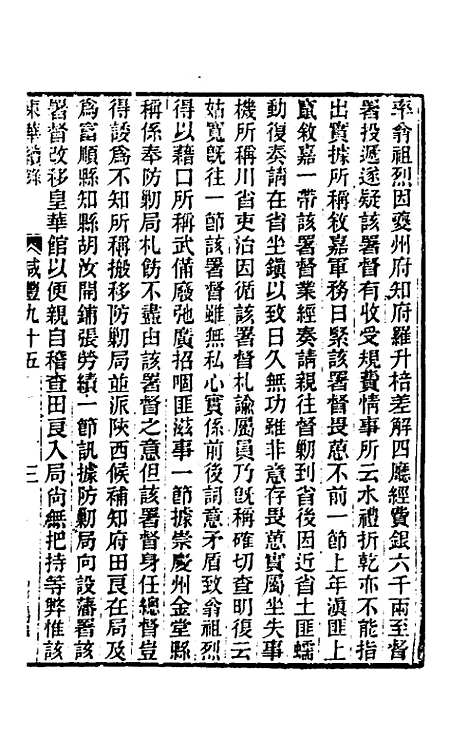 率翁祖烈因夔州府知府羅升棓差解四廳經費銀六千兩至督
署投遞遂疑該署督有收受規費情事所云水禮折乾亦不能指
出實據所稱敘嘉軍務日緊該署督畏葸不前一節上年滇匪上
竄敘嘉一帶該署督業經奏請親往督勦到省後因近省土匪蠕
動復奏請在省坐鎭以致日久無功雖非意存畏葸實屬坐失事
機所稱川省吏治因循該署督札諭屬員乃旣稱確切查明復云
姑寬旣往一節該署督雖無私心實係前後詞意矛盾致翁祖烈
得以藉口所稱武備廢弛廣招嘓匪滋事一節據崇慶州金堂縣
稱係奉防勦局札飭不盡由該署督之意但該署督身任總督豈
得諉爲不知所稱搬移防勦局並派陝西候補知府田艮在局及
爲富順縣知縣胡汝開鋪張勞績一節訊據防勦局向設藩署該
署督改移皇華館以便親自稽查田艮入局尙無把持等弊惟該
東華續錄
咸豐九十五
三